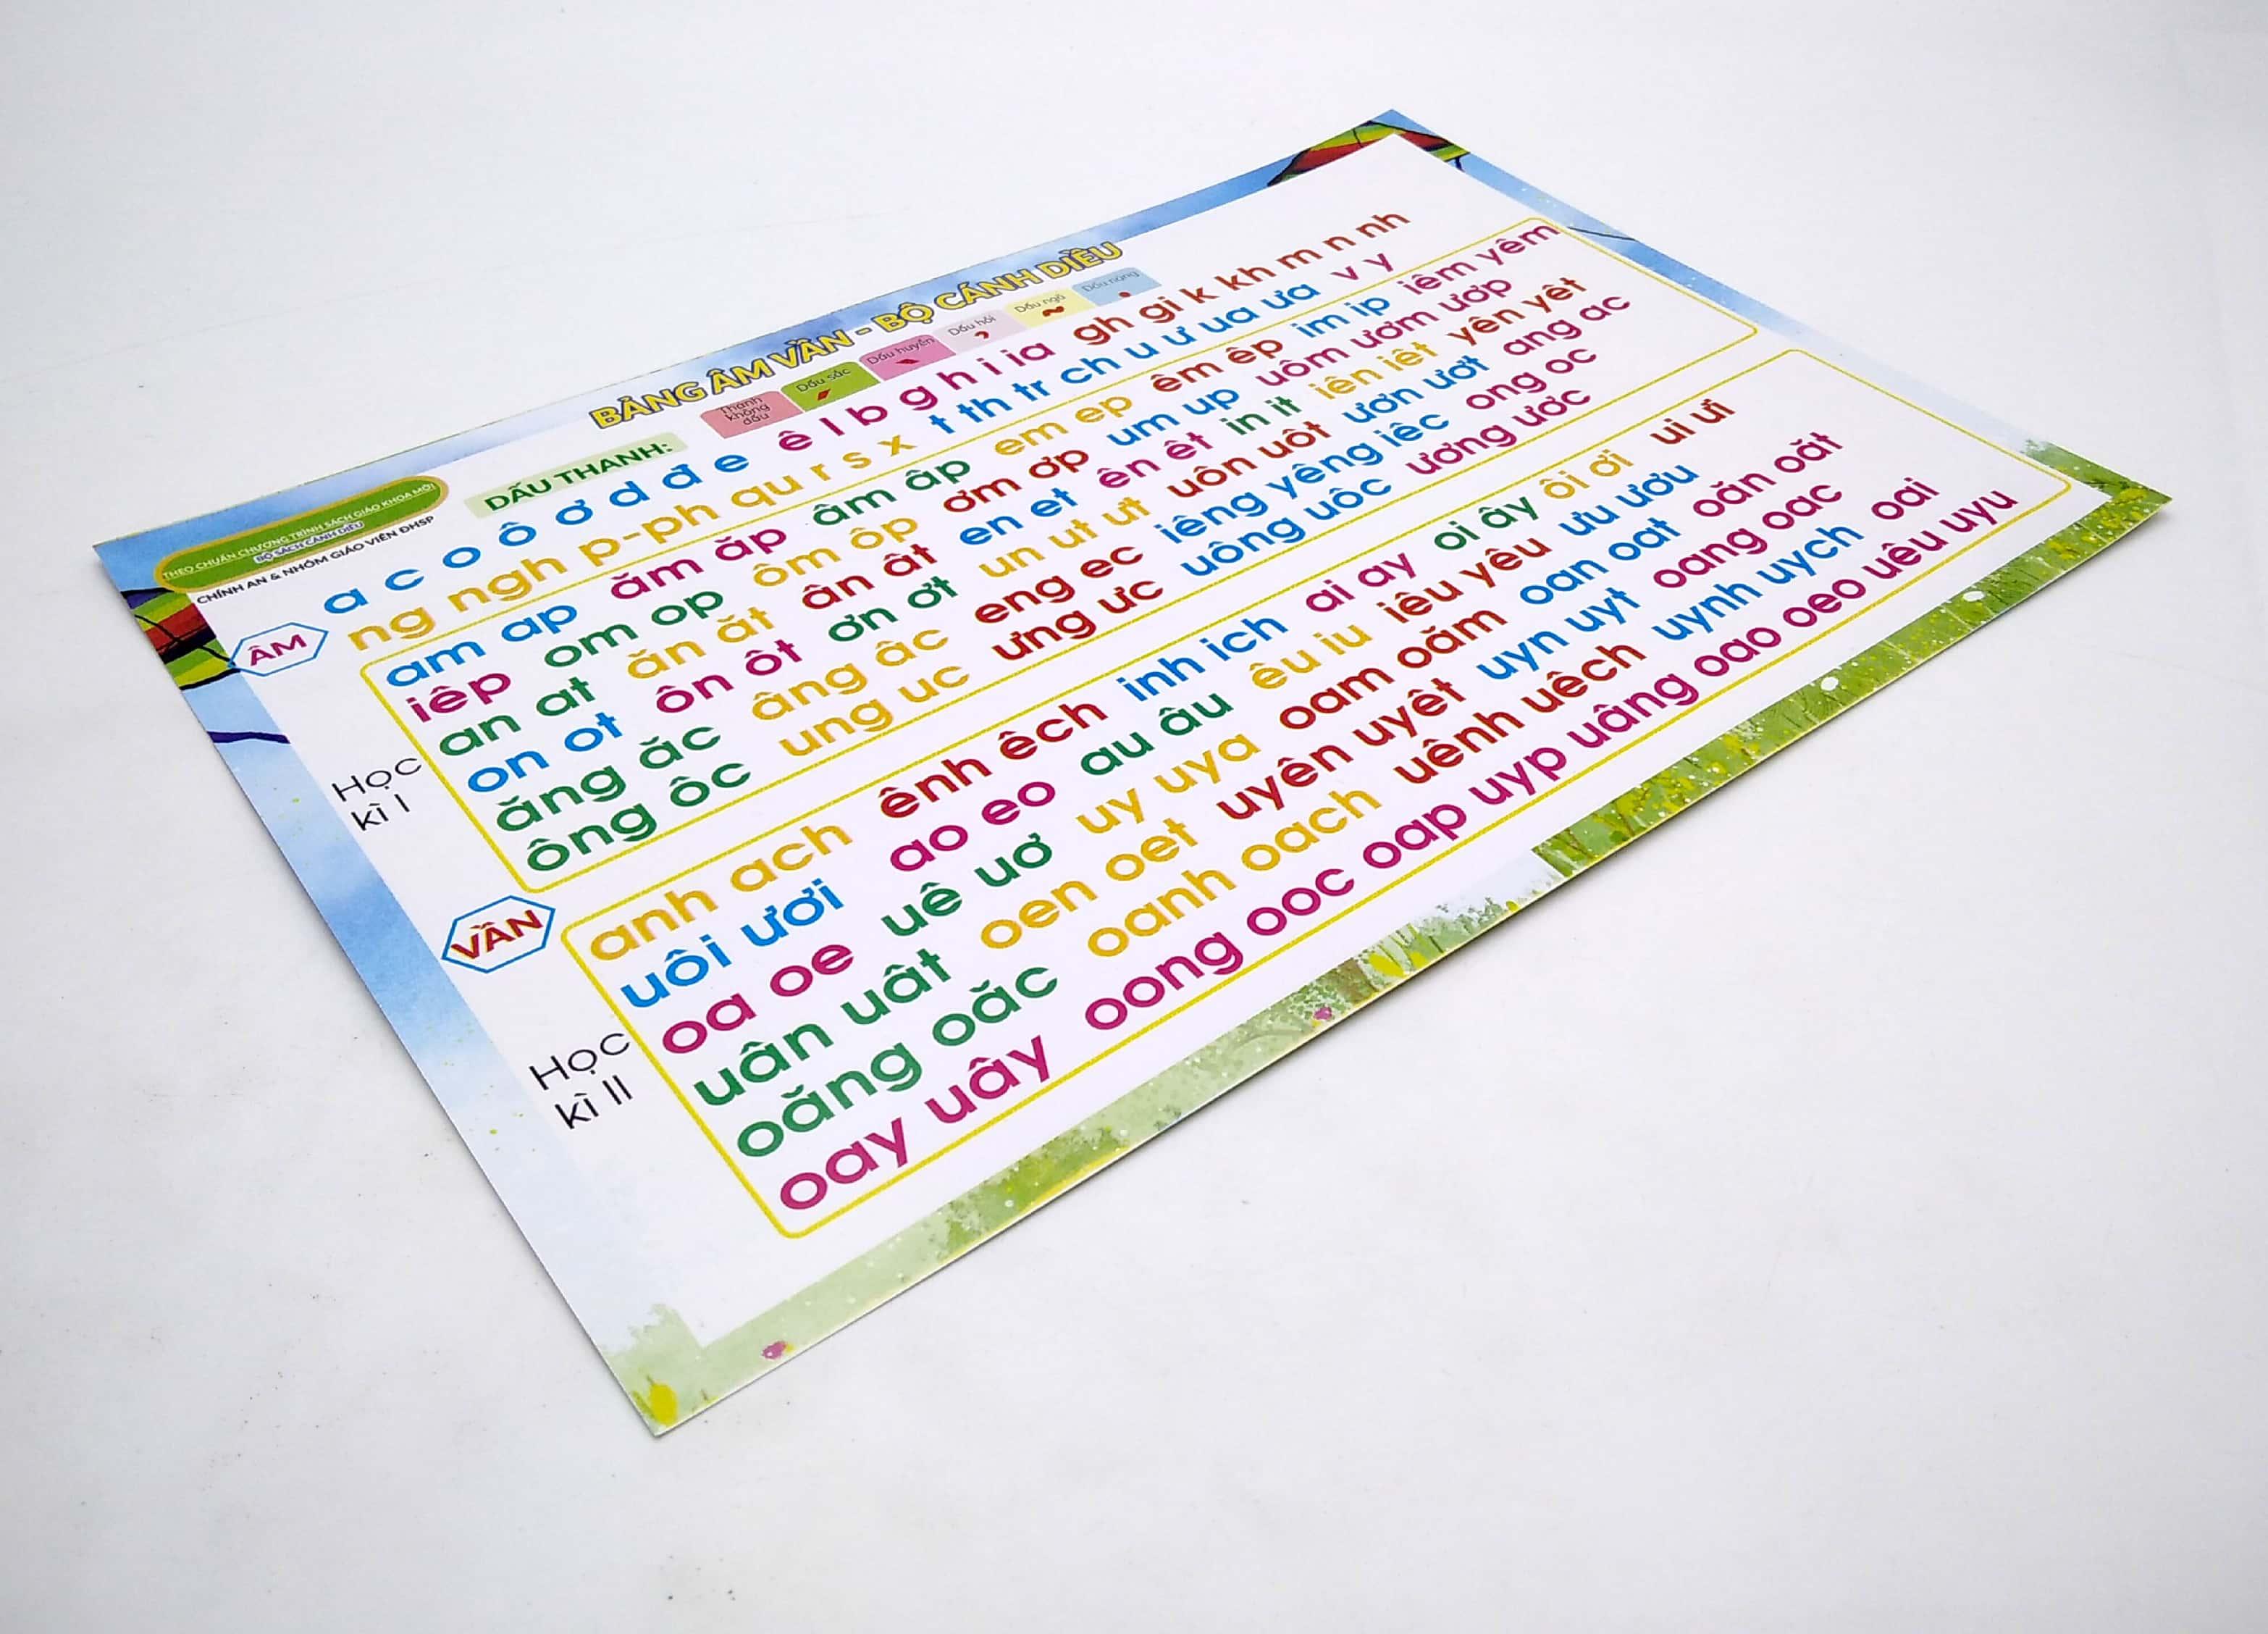 BẢNG ÂM VẦN - BỘ CÁNH DIỀU
THEO CHUẨN CHƯƠNG TRÌNH SÁCH GIÁO KHOA MỚI
BỘ SÁCH CÁNH DIỀU
CHÍNH AN & NHÓM GIÁO VIÊN ĐHSP
DẤU THANH: Thanh không dấu Dấu sắc Dấu huyền Dấu hỏi Dấu ngã Dấu nặng
ÂM
a c o ô ơ d đ e ê l b g h i ia gh gi k kh m n nh
ng ngh p-ph qu r s x t th tr ch u ư ua ưa v y
VẦN
Học kì I
am ap ăm ăp âm âp em ep êm êp im ip iêm yêm
iêp om op ôm ôp ơm ơp um up uôm ươm ươp
an at ăn ăt ân ât en et ên êt in it iên iêt yên yêt
on ot ôn ôt ơn ơt un ut ưt uôn uôt ươn ươt ang ac
ăng ăc âng âc eng ec iêng yêng iêc ong oc
ông ôc ung uc ưng ưc uông uôc ương ước
Học kì II
anh ach ênh êch inh ich ai ay oi ây ôi ơi ui ưi
uôi ươi ao eo au âu êu iu iêu yêu ưu ươu
oa oe uê uơ uy uya oam oăm oan oat oăn oăt
uân uât oen oet uyên uyêt uyn uyt oang oac
oăng oăc oanh oach uênh uêch uynh uych oai
oay uây oong ooc oap uyp uâng oao oeo uêu uyu